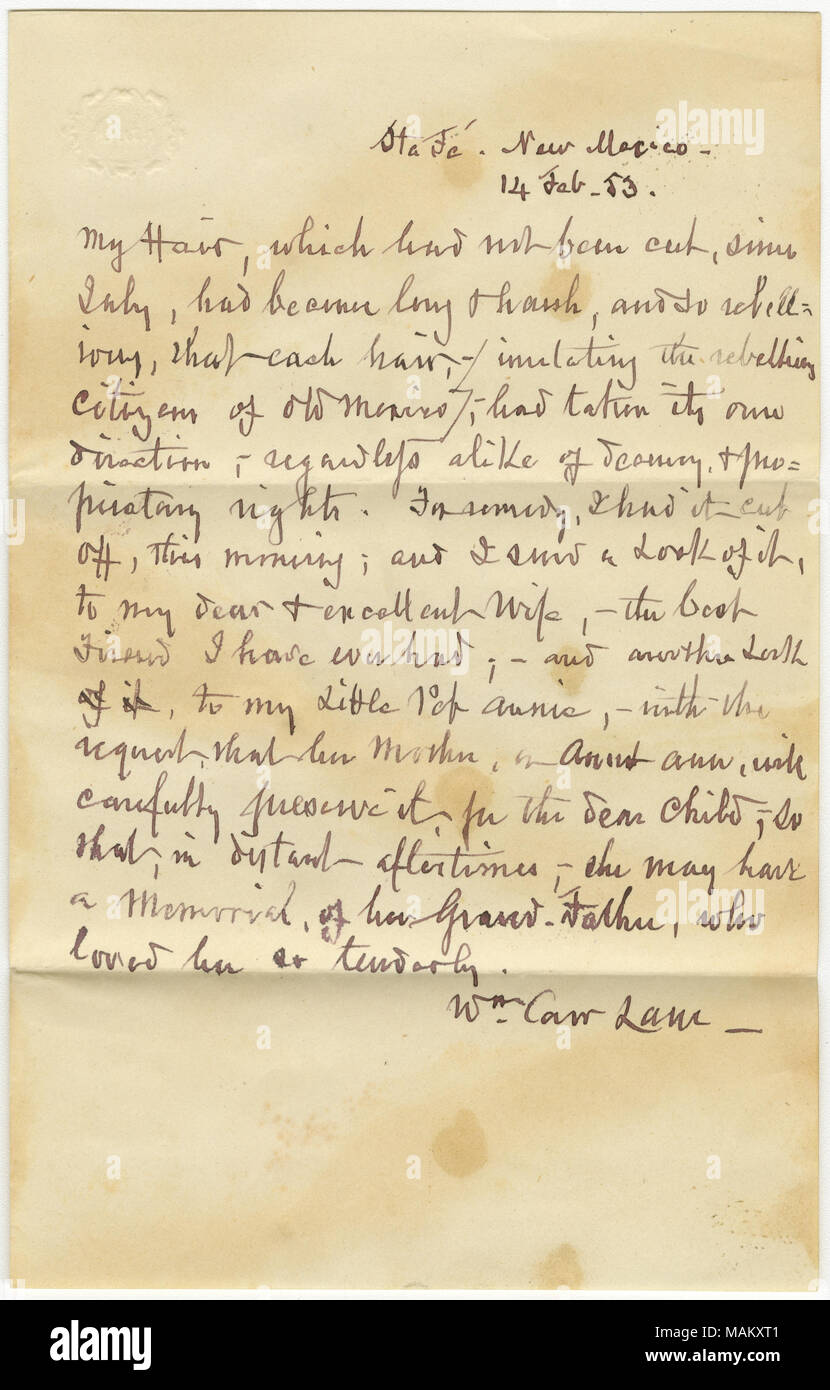 Sta Fé. New Mexico -
14 Feb - 53.
My Hair, which had not been cut, since
July, had become long & harsh, and so rebell=
ious, that each hair, -/imitating the rebellious
citizens of old Mexico/, - had taken its own
direction, - regardless alike of decency, & pro=
prietary rights. For remedy, I had it cut
off, this morning; and I send a Lock of it,
to my dear & excellent Wife, - the best
Friend I have ever had; - and another Lock
of it, to my Little Pet Annie, - with the
request, that her Mother, or Aunt Ann, will
carefully preserve it, for the dear Child, - so
that, in distant aftertimes, - she may have
a Memorial, of her Grand-Father, who
loved her so tenderly.
Wm Carr Lane -
alamy
Image ID: MAKXT1
www.alamy.com